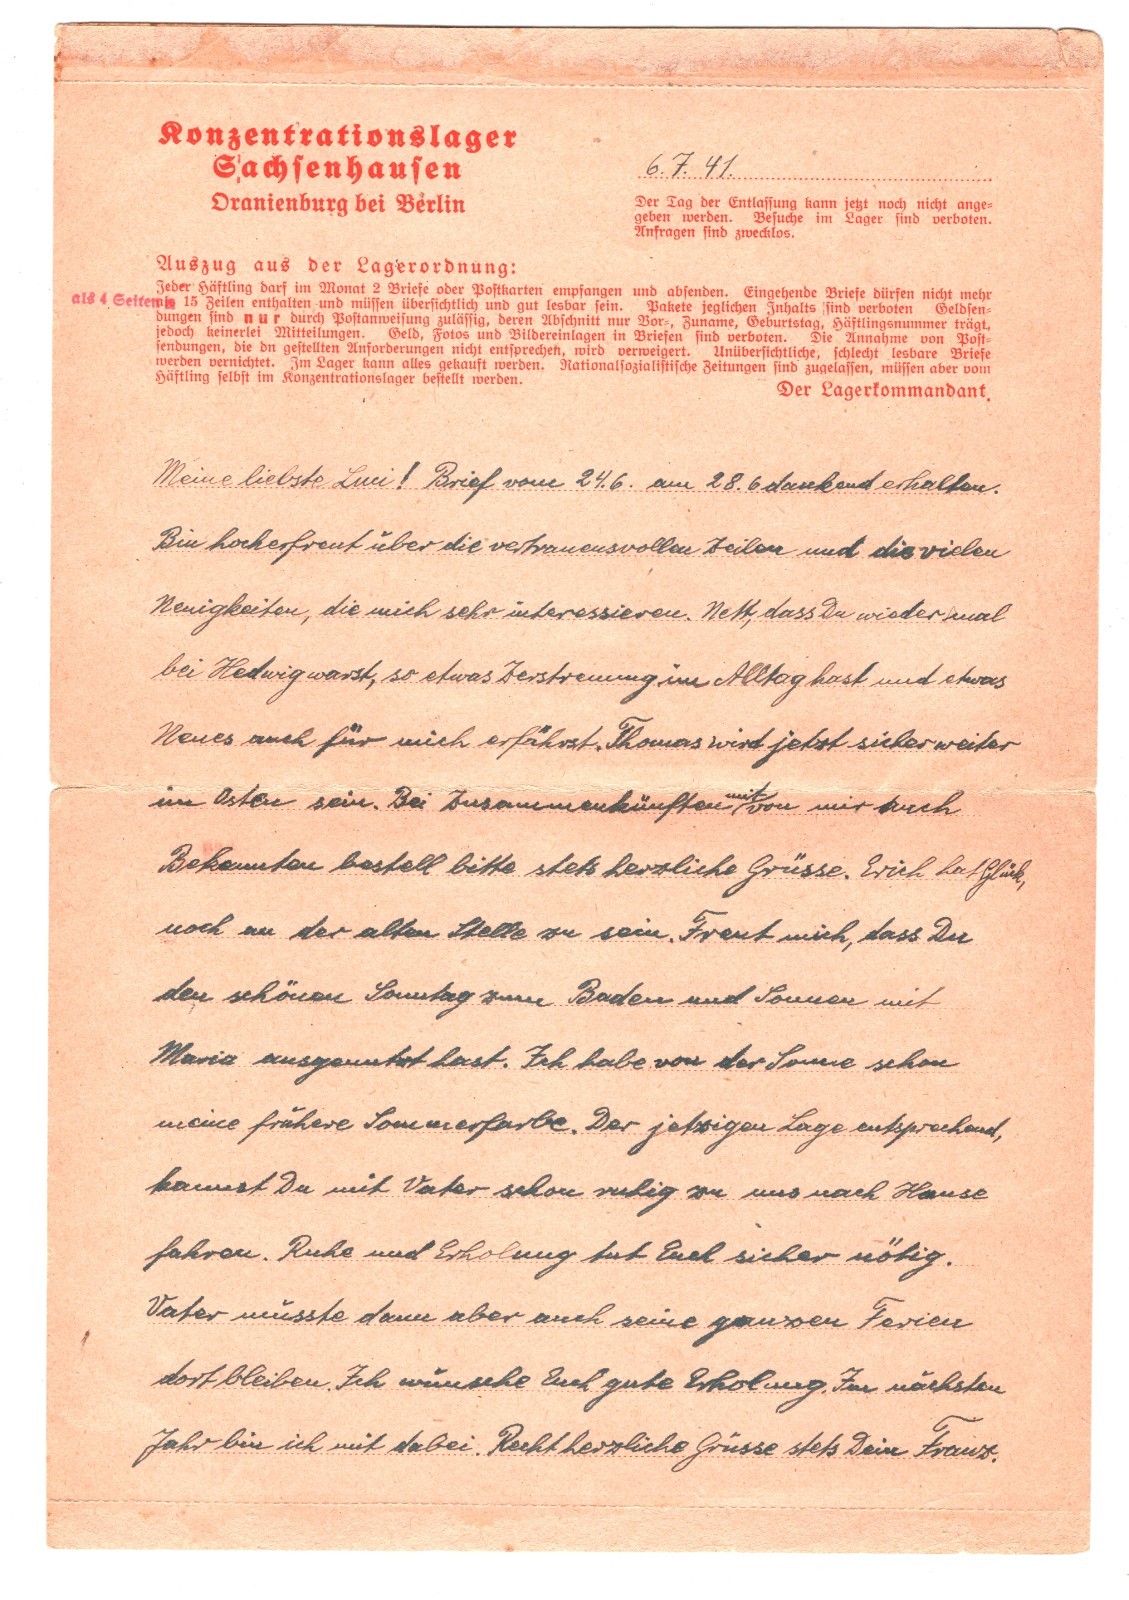 Konzentrationslager
Sachsenhausen
Oranienburg bei Berlin
6.7.41.
Der Tag der Entlassung kann jetzt noch nicht ange-
geben werden. Besuche im Lager sind verboten.
Anfragen sind zwecklos.
Auszug aus der Lagerordnung:
Jeder Häftling darf im Monat 2 Briefe oder Postkarten empfangen und absenden. Eingehende Briefe dürfen nicht mehr
als 4 Seiten à 15 Zeilen enthalten und müssen übersichtlich und gut lesbar sein. Pakete jeglichen Inhalts sind verboten Geldsen-
dungen sind nur durch Postanweisung zulässig, deren Abschnitt nur Vor-, Zuname, Geburtstag, Häftlingsnummer trägt,
jedoch keinerlei Mitteilungen. Geld, Fotos und Bildereinlagen in Briefen sind verboten. Die Annahme von Post-
sendungen, die dn gestellten Anforderungen nicht entsprechen, wird verweigert. Unübersichtliche, schlecht lesbare Briefe
werden vernichtet. Im Lager kann alles gekauft werden. Nationalsozialistische Zeitungen sind zugelassen, müssen aber vom
Häftling selbst im Konzentrationslager bestellt werden.
Der Lagerkommandant.
Meine liebste Luci! Brief vom 24.6. am 28.6 dankend erhalten.
Bin hocherfreut über die vertrauensvollen Zeilen und die vielen
Neuigkeiten, die mich sehr interessieren. Nett, dass Du wieder mal
bei Hedwig warst, so etwas Zerstreuung im Alltag hast und etwas
Neues auch für mich erfährst. Thomas wird jetzt sicher weiter
im Osten sein. Bei Zusammenkünften mit von mir auch
Bekannten bestell bitte stets herzliche Grüsse. Erich hat Glück,
noch an der alten Stelle zu sein. Freut mich, dass Du
den schönen Sonntag zum Baden und Sonnen mit
Maria ausgenutzt hast. Ich habe von der Sonne schon
meine frühere Sommerfarbe. Der jetzigen Lage entsprechend,
kannst Du mit Vater schon ruhig zu uns nach Hause
fahren. Ruhe und Erholung tut Euch sicher nötig.
Vater müsste dann aber auch seine ganzen Ferien
dort bleiben. Ich wünsche Euch gute Erholung. Im nächsten
Jahr bin ich mit dabei. Recht herzliche Grüsse stets Dein Franz.